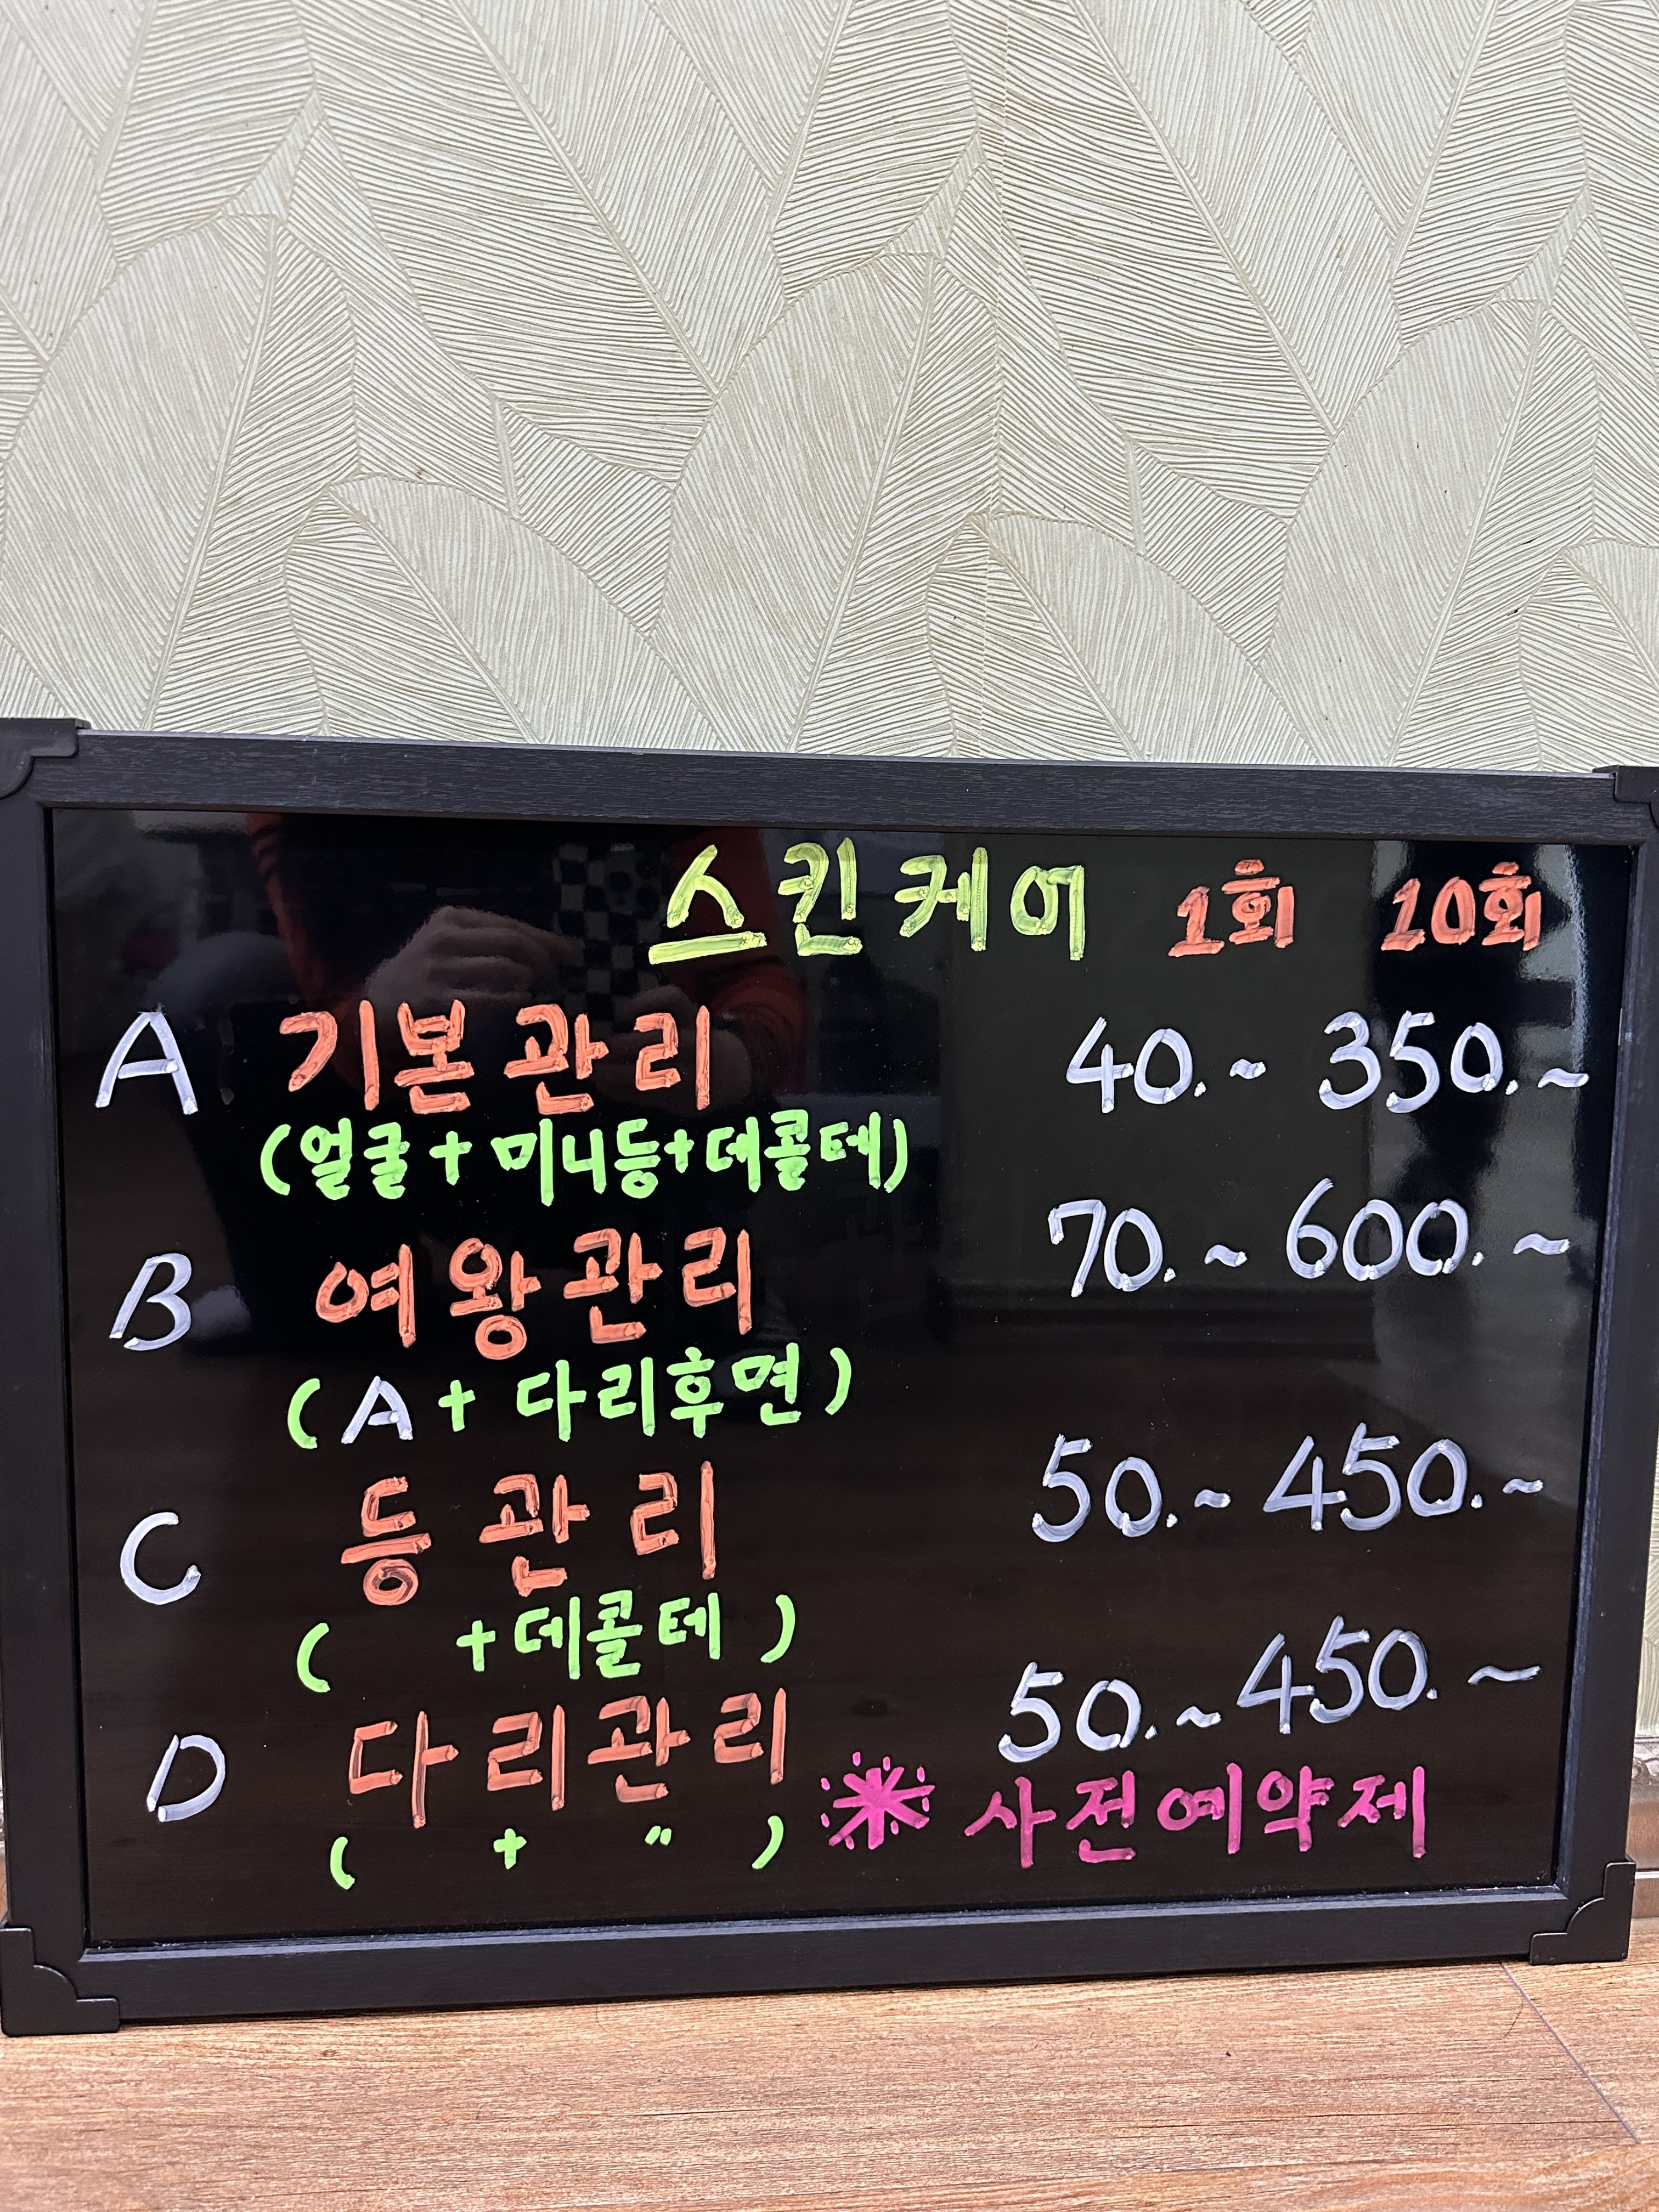 스킨케어 1회 10회
A 기본관리 40.~ 350.~
(얼굴+미니등+데콜테)
B 여왕관리 70.~ 600.~
(A+다리후면)
C 등관리 50.~ 450.~
( +데콜테 )
D 다리관리 50.~ 450.~
( + " ) ※ 사전예약제